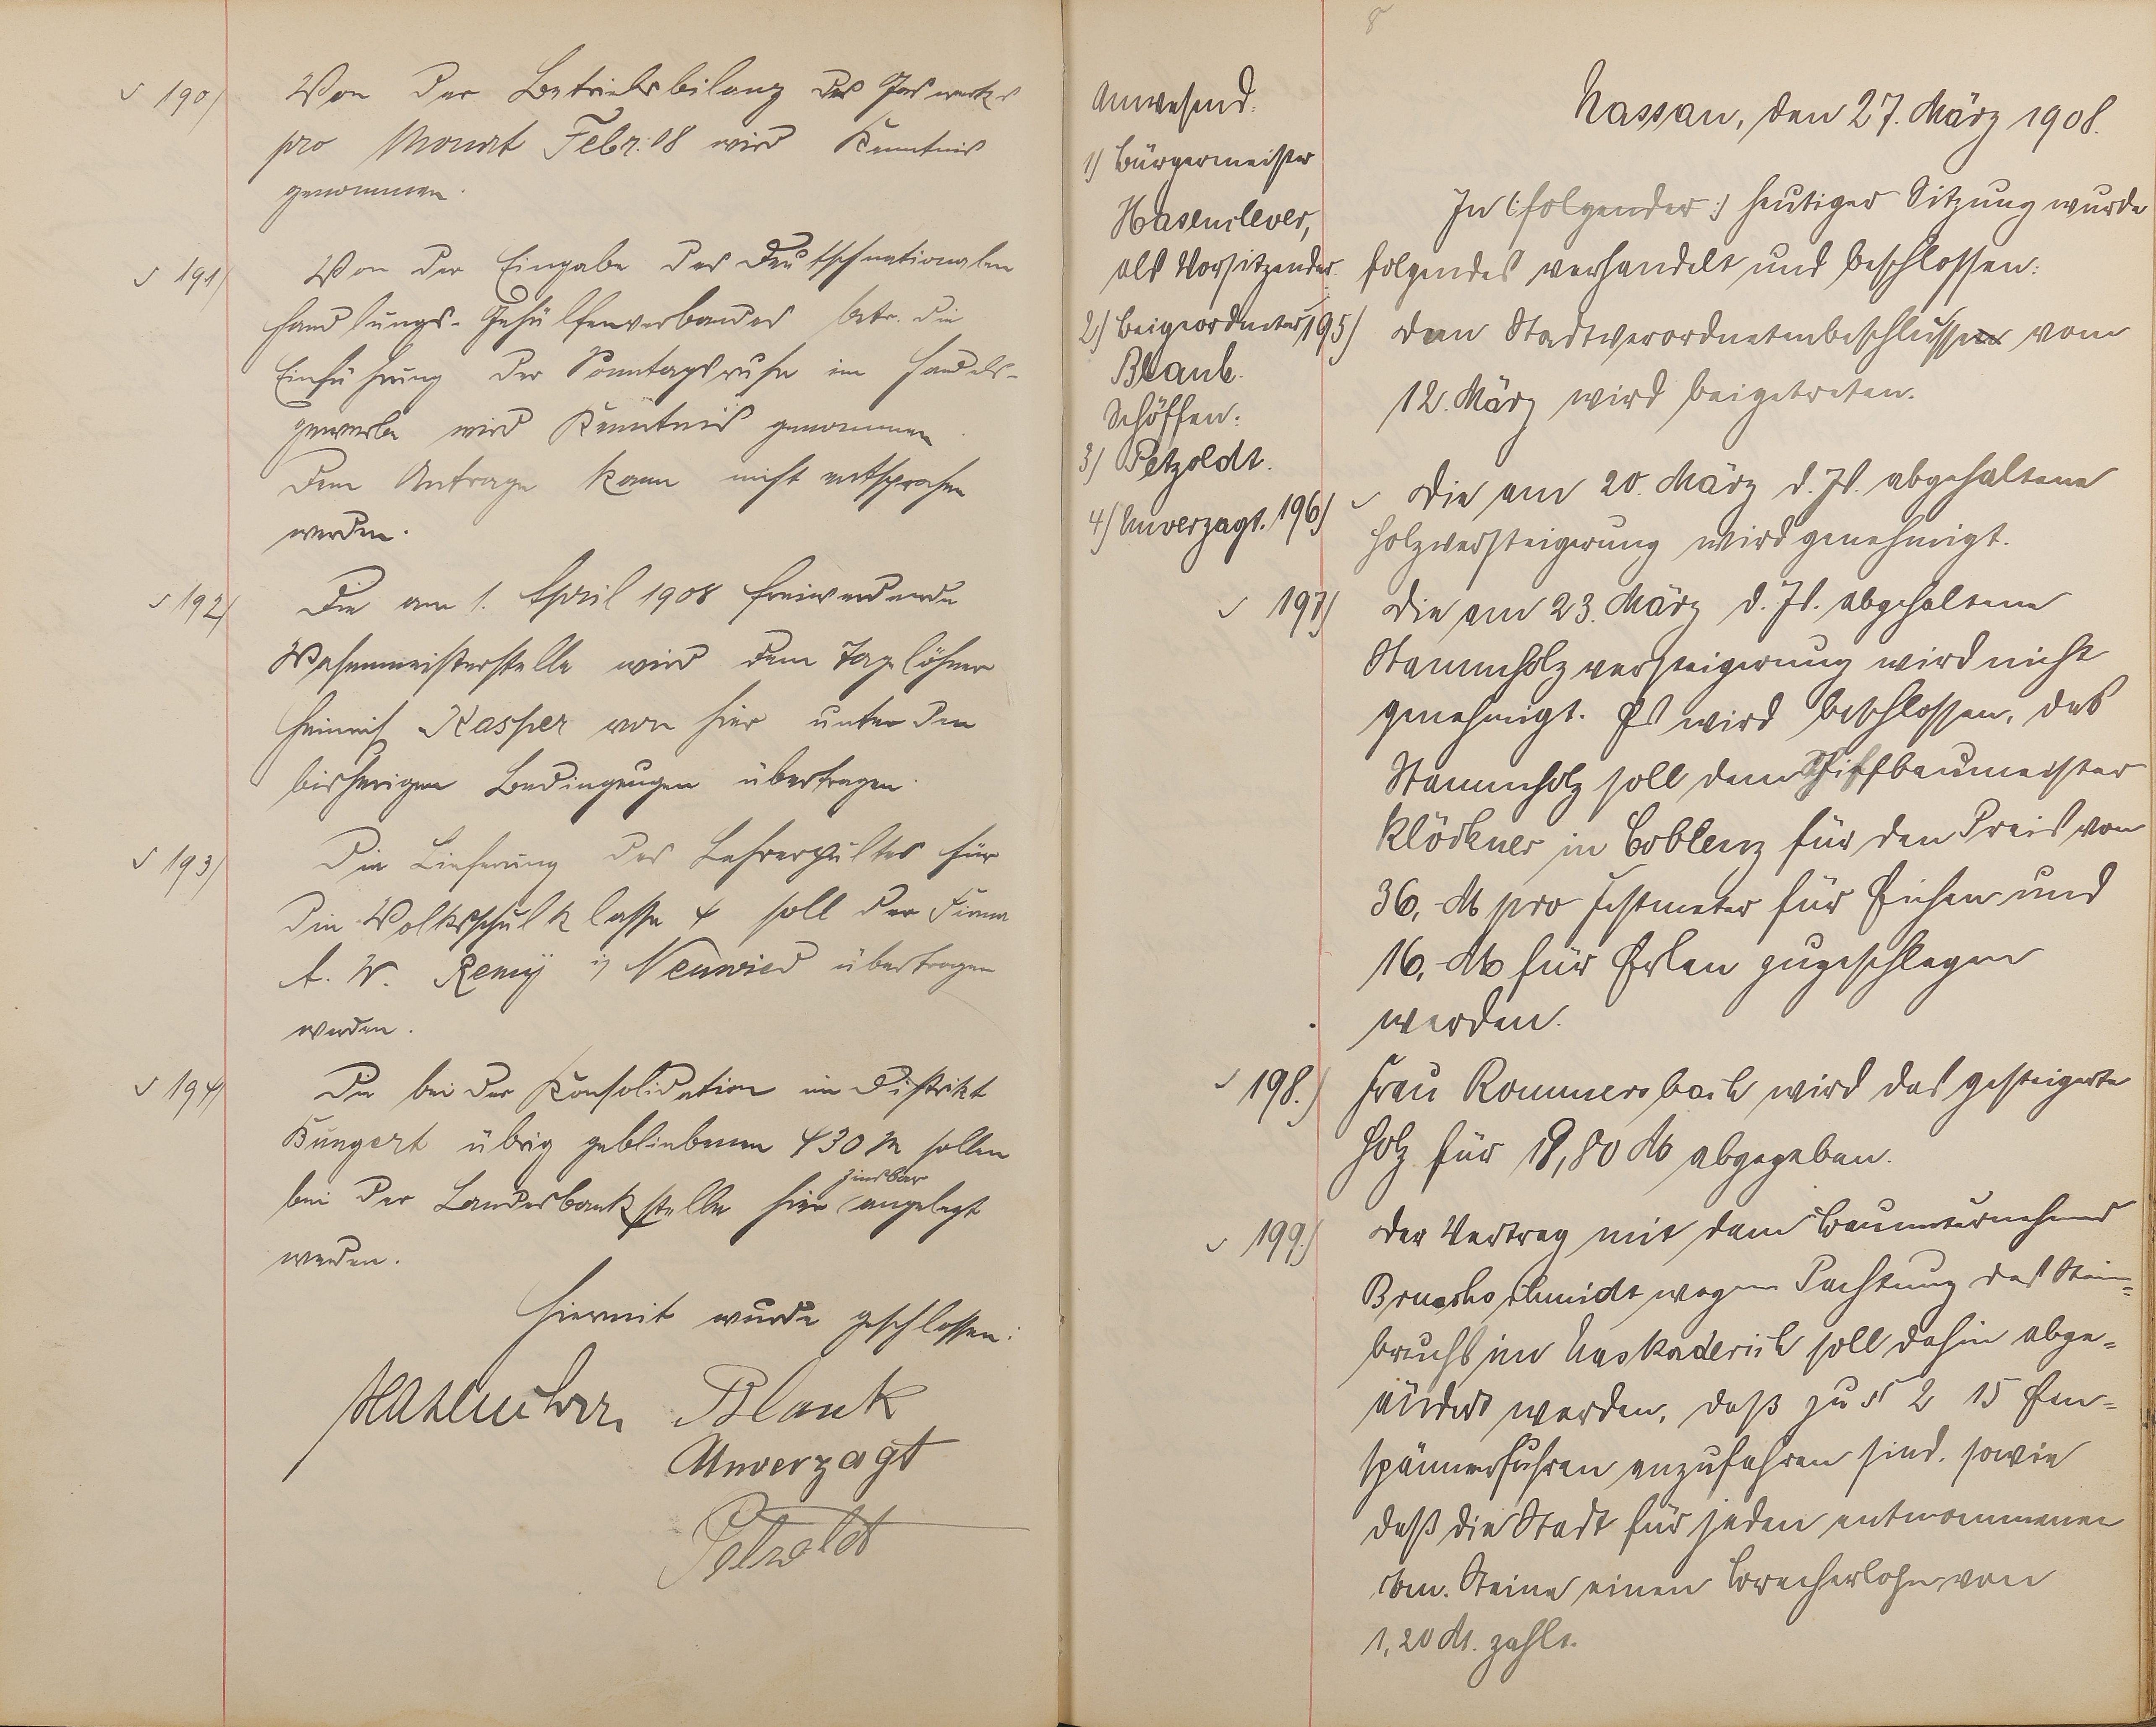 190) Von der Betriebsbilanz des Gaswerks
pro Monat Febr. 08 wird Kenntnis
genommen.
191) Von der Eingabe des Deutschnationalen
Handlungs-Gehülfenverbandes betr. die
Einführung der Sonntagsruhe im Handels-
gewerbe wird Kenntnis genommen
Dem Antrage kann nicht entsprochen
werden.
192) Die am 1. April 1908 freiwerdende
Wasenmeisterstelle wird dem Tagelöhner
Heinrich Kasper von hier unter den
bisherigen Bedingungen übertragen.
193) Die Lieferung des Lehrerpultes für
die Volksschulklasse 4 soll der Firma
A. W. Remÿ in Neuwied übertragen
werden.
194) Die bei der Konsolidation im Distrikt
Bungert übrig gebliebenen 430 M sollen
bei der Landesbankstelle hier zinsbar angelegt
werden.
Hiermit wurde geschlossen:
Hasenclever Blank
Unverzagt
Petzoldt
8
Anwesend:
1) Bürgermeister
Hasenclever,
als Vorsitzender.
2) Beigeordneter
Blank.
Schöffen:
3) Petzoldt.
4) Unverzagt.
Nassau, den 27. März 1908.
In (: folgender :) heutiger Sitzung wurde
folgendes verhandelt und beschlossen:
195) Dem Stadtverordnetenbeschlusse vom
12. März wird beigetreten.
196) Die am 20. März d. Js. abgehaltene
Holzversteigerung wird genehmigt.
197) Die am 23. März d. Js. abgehaltene
Stammholzversteigerung wird nicht
genehmigt. Es wird beschlossen, das
Stammholz soll dem Schiffbaumeister
Klöckner in Coblenz für den Preis von
36,- M pro Festmeter für Eichen und
16,- M für Erlen zugeschlagen
werden.
198.) Frau Rommersbach wird das gesteigerte
Holz für 18,80 M abgegeben.
199.) Der Vertrag mit dem Bauunternehmer
Bruchschmidt wegen Pachtung des Stein=
bruchs im Kaskaderich soll dahin abge=
ändert werden, daß zu § 2 15 Ein=
spännerfuhren anzufahren sind, sowie
daß die Stadt für jeden entnommenen
cbm. Steine einen Brecherlohn von
1,20 M. zahlt.